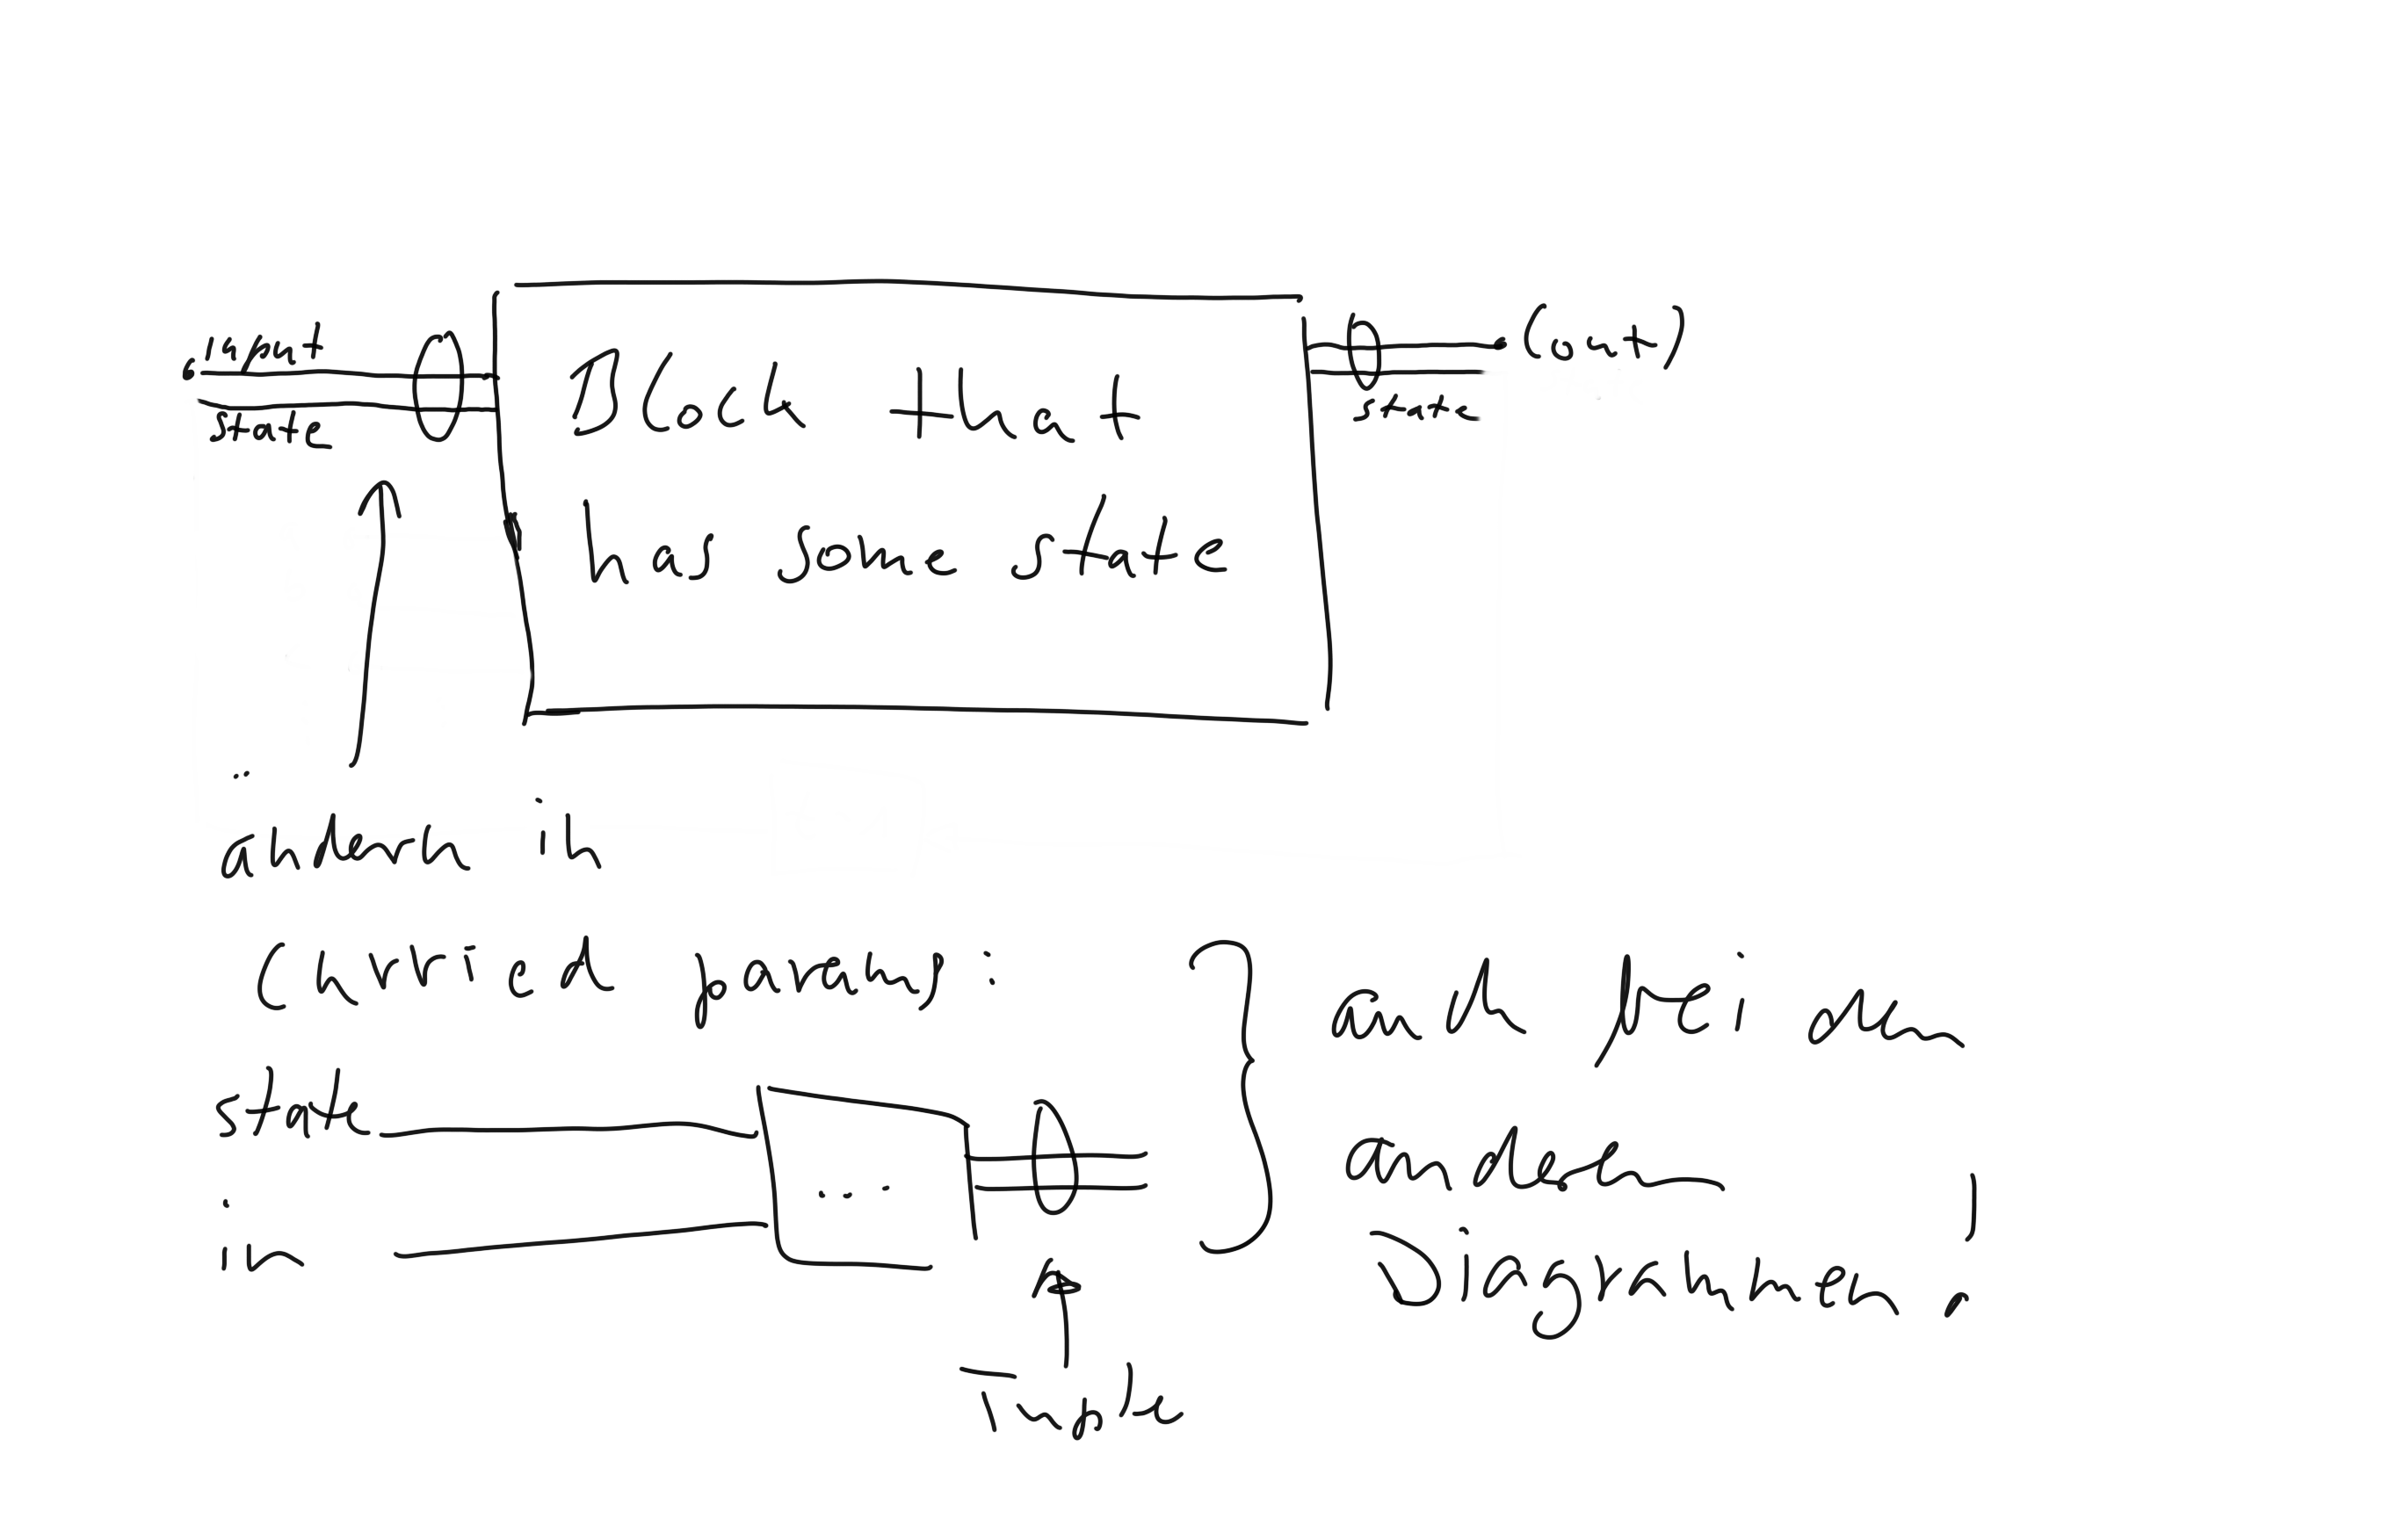 input
state
Block that
has some state
(out)
state
ändern in
Curried params:
state
in
...
Tuple
auch bei den
anderen
Diagrammen!